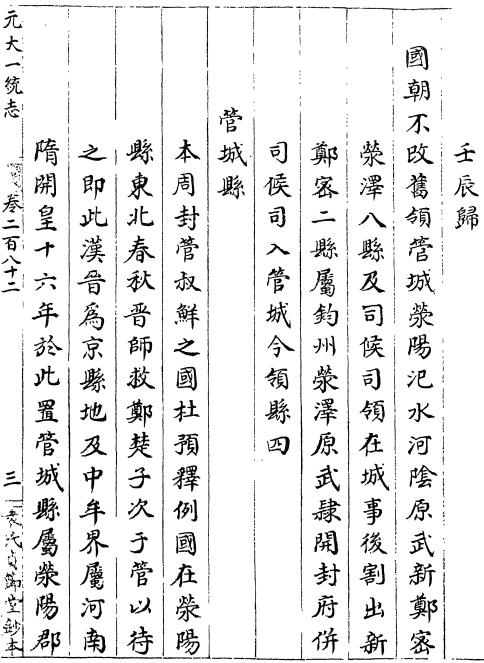 壬辰歸
國朝不改舊領管城滎陽汜水河陰原武新鄭密
滎澤八縣及司候司領在城事後割出新
鄭密二縣屬鈞州滎澤原武隸開封府併
司候司入管城今領縣四
管城縣
本周封管叔鮮之國杜預釋例國在滎陽
縣東北春秋晉師救鄭楚子次于管以待
之即此漢晉爲京縣地及中牟界屬河南
隋開皇十六年於此置管城縣屬滎陽郡
元大一統志 卷二百八十二 三 袁氏貞節堂鈔本